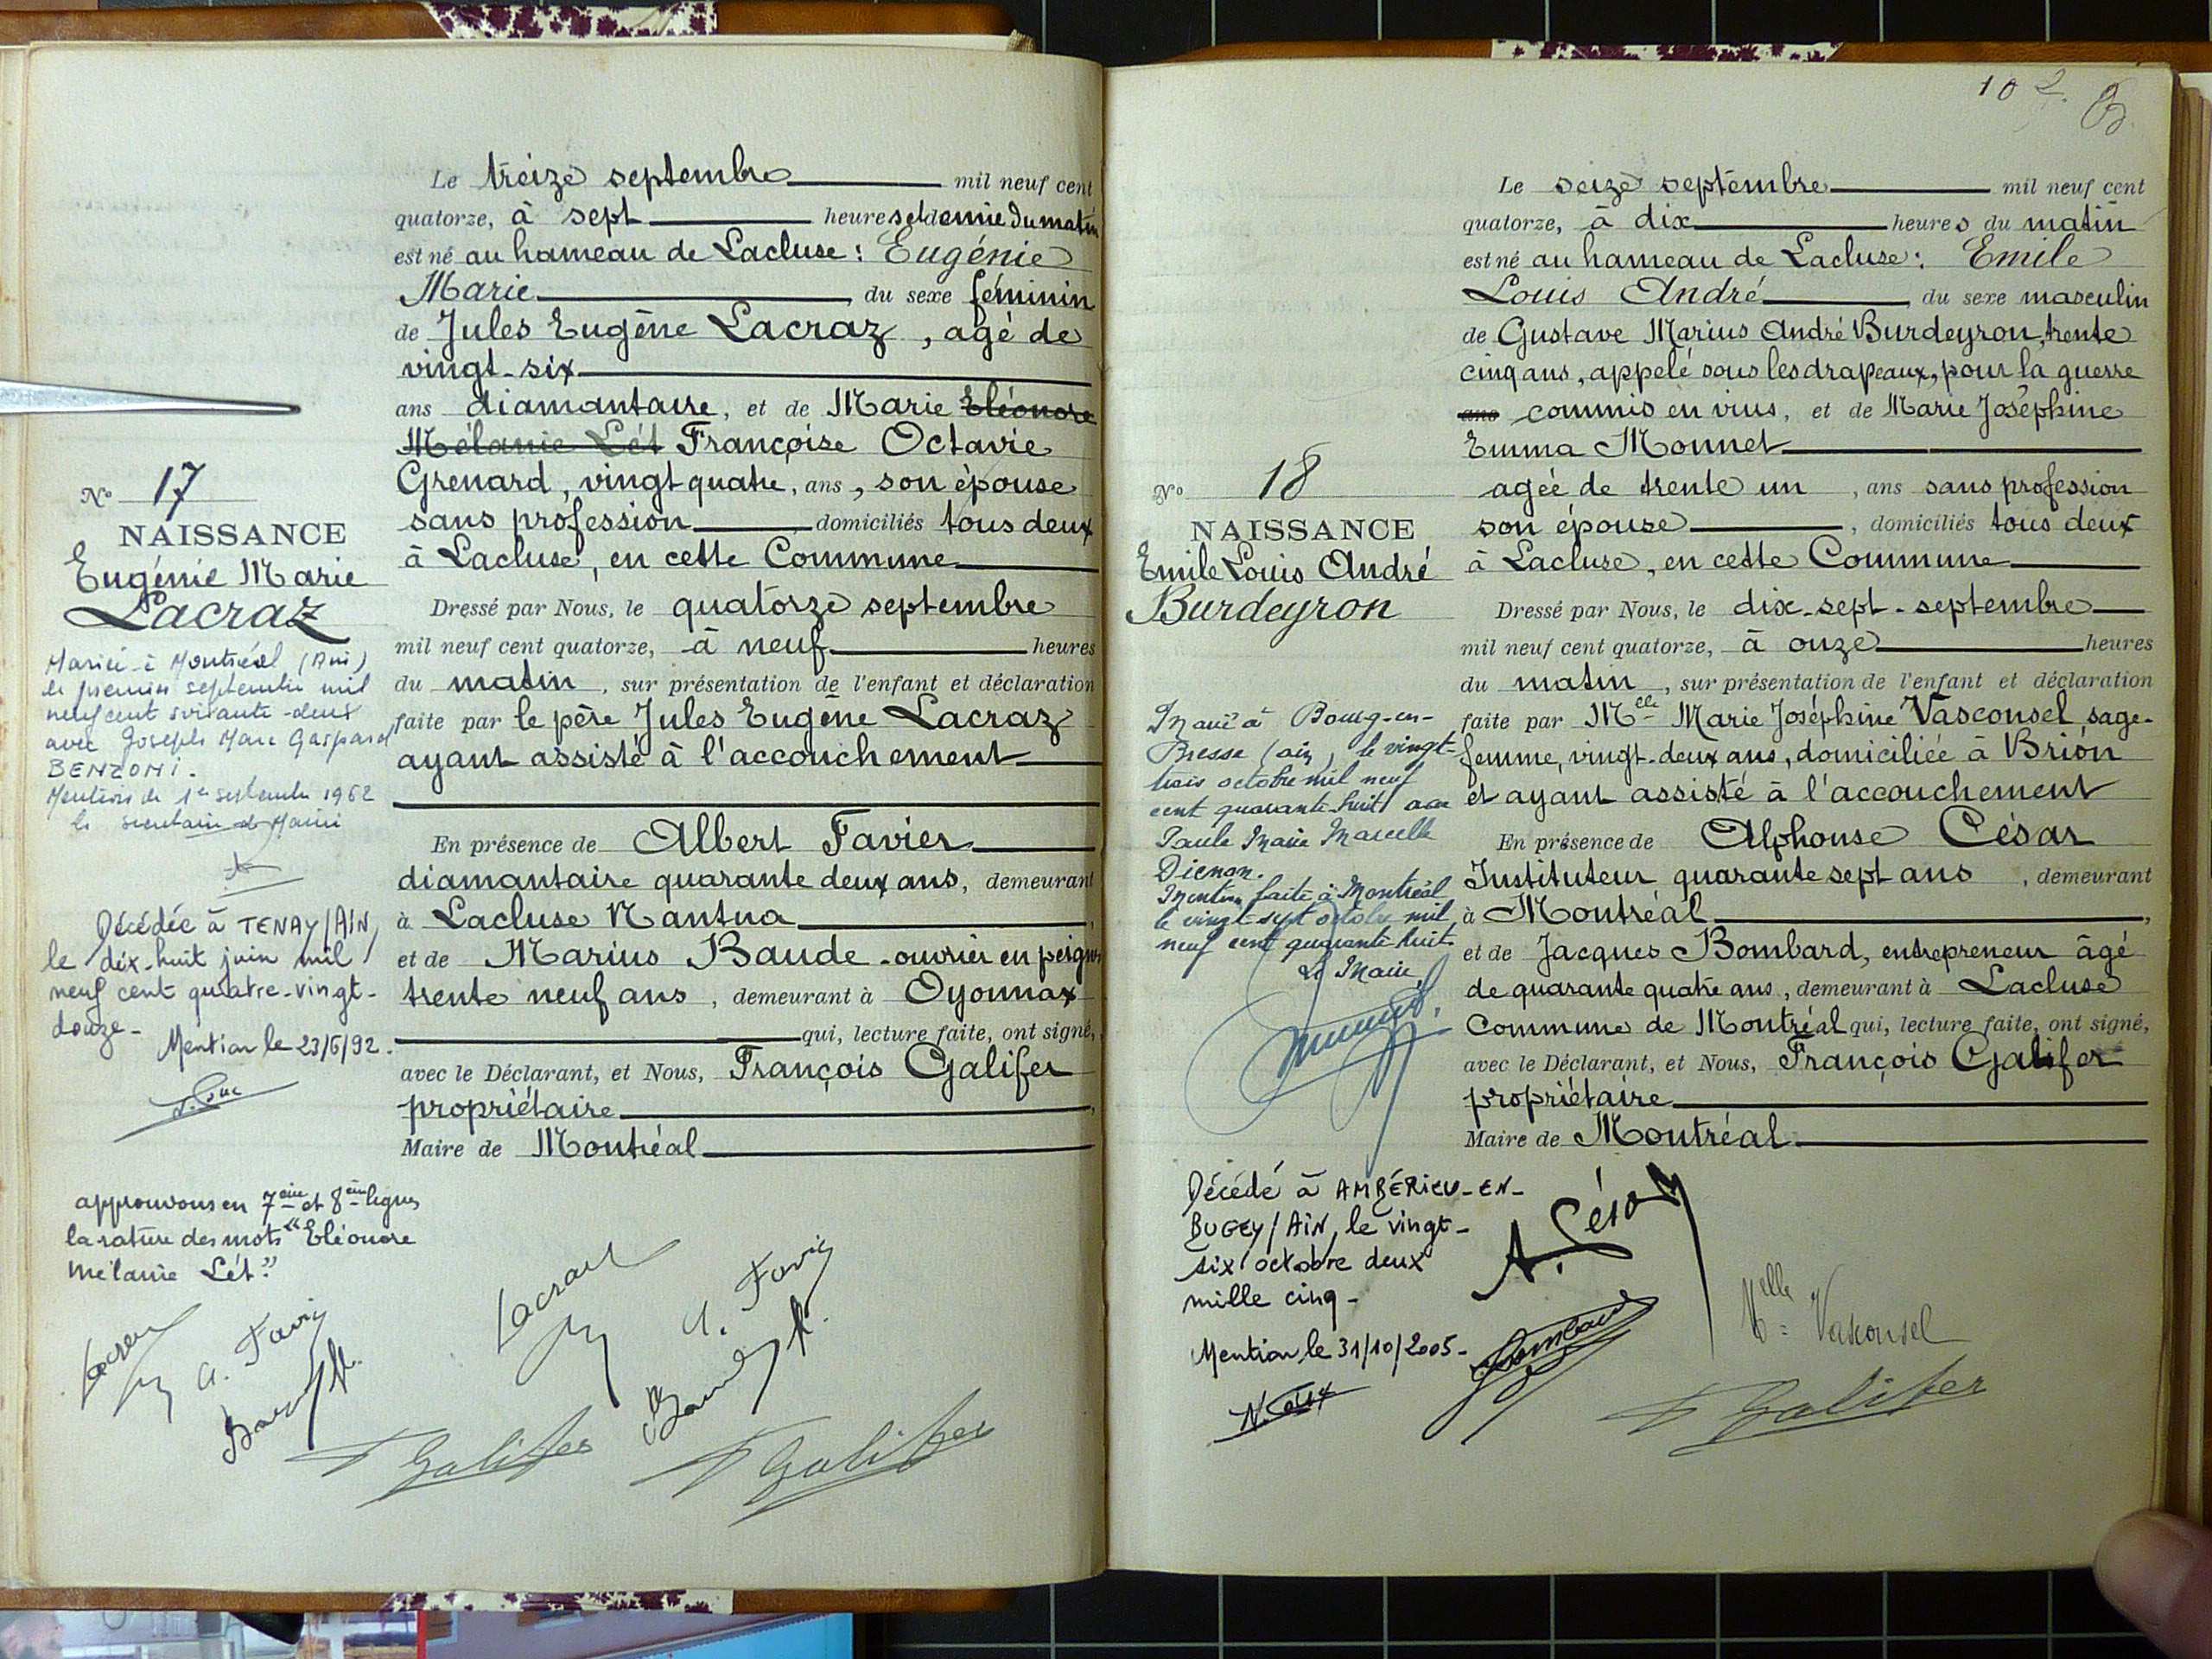 Le treize septembre mil neuf cent
quatorze, à sept heures et demie du matin
est né au hameau de Lacluse : Eugénie
Marie, du sexe féminin
de Jules Eugène Lacraz, agé de
vingt-six
ans diamantaire, et de Marie Eléonore
Mélanie Lét Françoise Octavie
Grenard, vingt quatre, ans, son épouse
sans profession domiciliés tous deux
à Lacluse, en cette Commune
Dressé par Nous, le quatorze septembre
mil neuf cent quatorze, à neuf heures
du matin, sur présentation de l'enfant et déclaration
faite par le père Jules Eugène Lacraz
ayant assisté à l'accouchement
En présence de Albert Favier
diamantaire quarante deux ans, demeurant
à Lacluse Nantua
et de Marius Baude - ouvrier en peignes
trente neuf ans, demeurant à Oyonnax
qui, lecture faite, ont signé,
avec le Déclarant, et Nous, François Galifer
propriétaire
Maire de Montréal
N° 17
NAISSANCE
Eugénie Marie
Lacraz
Mariée à Montréal (Ain)
le premier septembre mil
neuf cent soixante-deux
avec Joseph Marc Gaspard
BENZONI.
Mention du 1er septembre 1962
le secrétaire de Mairie
Décédée à TENAY/AIN,
le dix-huit juin mil
neuf cent quatre-vingt-
douze -
Mention le 23/6/92.
approuvons en 7ème et 8ème lignes
la rature des mots "Eléonore
Mélanie Lét"
Lacraz
A. Favier
F Galifer
Lacraz
A. Favier
F Galifer
102
Le seize septembre mil neuf cent
quatorze, à dix heures du matin
est né au hameau de Lacluse : Emile
Louis André, du sexe masculin
de Gustave Marius André Burdeyron, trente
cinq ans, appelé sous les drapeaux, pour la guerre
ans commis en vins, et de Marie Joséphine
Emma Monnet
agée de trente un, ans sans profession
son épouse, domiciliés tous deux
à Lacluse, en cette Commune
Dressé par Nous, le dix-sept-septembre
mil neuf cent quatorze, à onze heures
du matin, sur présentation de l'enfant et déclaration
faite par Melle Marie Joséphine Vasconsel sage-
femme, vingt-deux ans, domiciliée à Brion
et ayant assisté à l'accouchement
En présence de Alphonse César
Instituteur quarante sept ans, demeurant
à Montréal,
et de Jacques Bombard, entrepreneur âgé
de quarante quatre ans, demeurant à Lacluse
Commune de Montréal qui, lecture faite, ont signé,
avec le Déclarant, et Nous, François Galifer
propriétaire
Maire de Montréal
N° 18
NAISSANCE
Emile Louis André
Burdeyron
Marié à Bourg-en-
Bresse (ain), le vingt-
trois octobre mil neuf
cent quarante-huit avec
Paule Marie Marcelle
Dienon.
Mention faite à Montréal
le vingt-sept octobre mil
neuf cent quarante-huit
Le Maire,
Décédé à AMBÉRIEU-EN-
BUGEY/AIN, le vingt-
six octobre deux
mille cinq -
Mention le 31/10/2005 -
A. César
Bombard
Melle Vasconsel
F Galifer